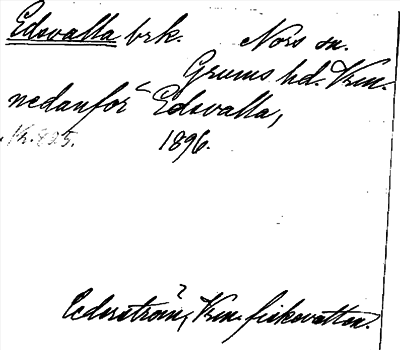 Edsvalla brk. Nors sn.
Grums hd. Vrm.
nedanför Edsvalla,
Kr. 825. 1896.
Cederström, Vrm. fiskevatten.